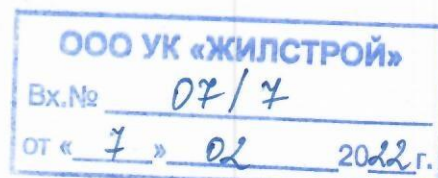 ООО УК «ЖИЛСТРОЙ»
Вх.№ 07/7
от « 7 » 02 2022 г.